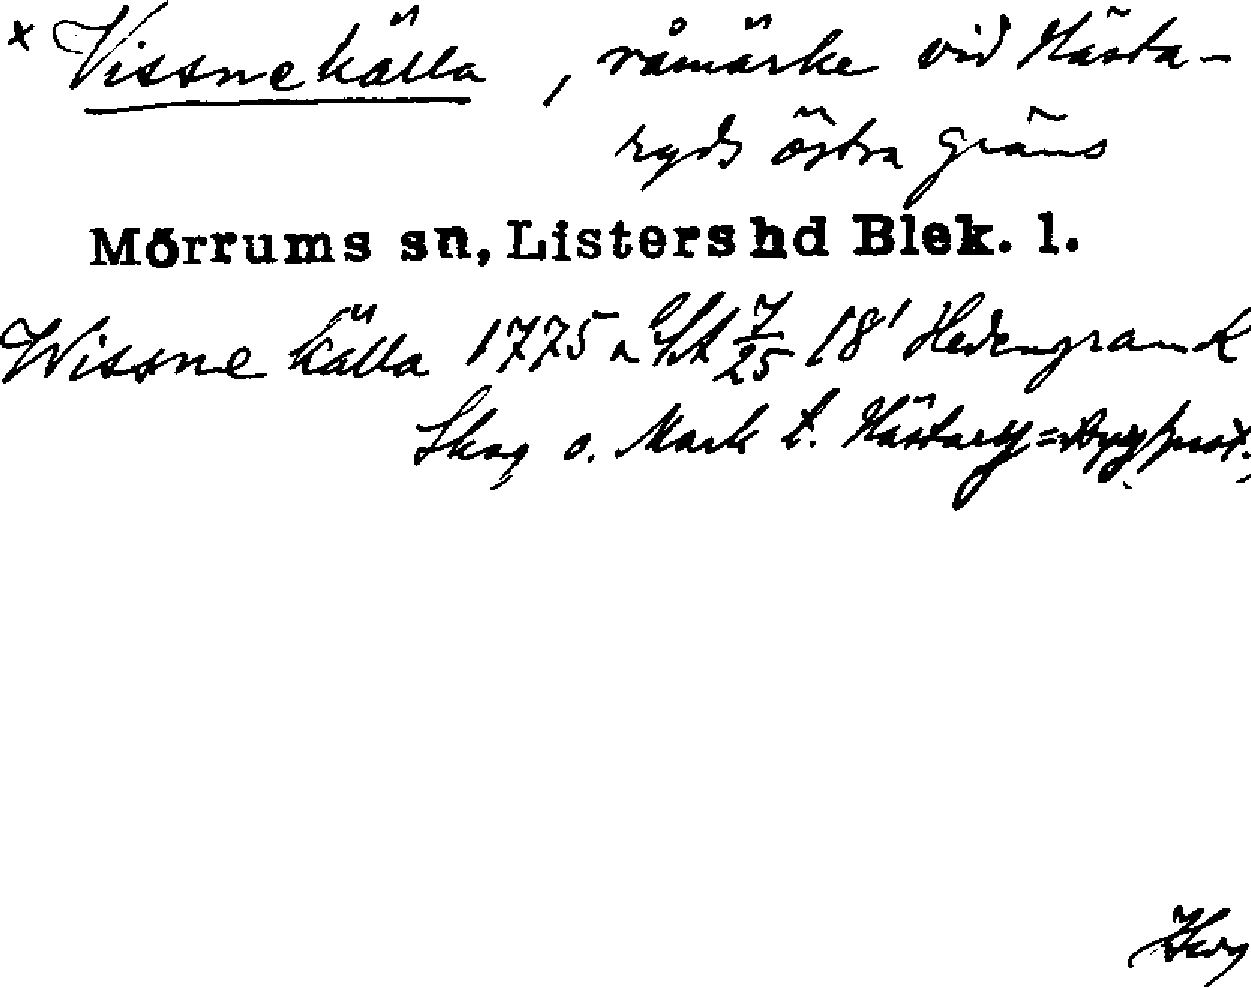 x Vissnekälla, råmärke vid Hästa-
ryds östra gräns
Mörrums sn, Listers hd Blek. l.
Wissne källa 1775 7/25 18' Hedengran K
Skog o. Mark t. Hästary=